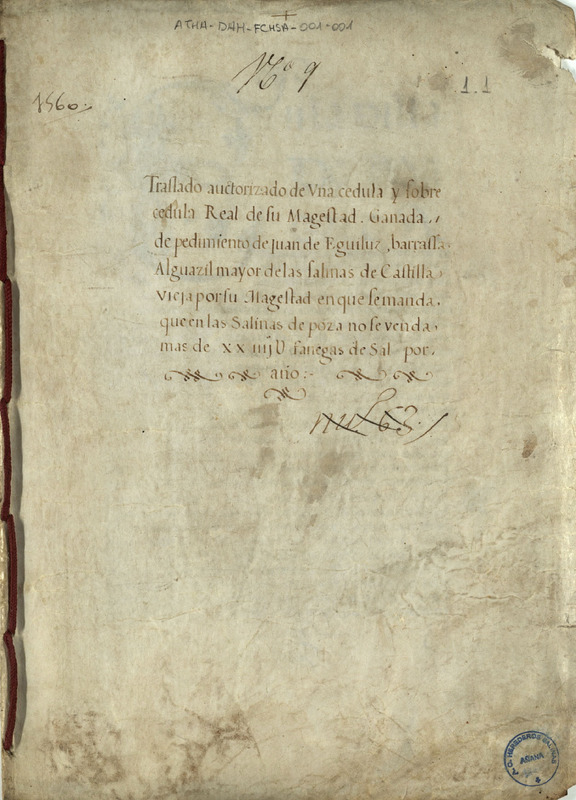 ATHA-DAH-FCHSA-001-001
Nº 9
1.1
1560
Traslado auctorizado de Vna cedula y sobre
cedula Real de su Magestad. Ganada,,
de pedimiento de Juan de Eguiluz, barrassa
Alguazil mayor de las salinas de Castilla
Vieja por su Magestad en que se manda.
que en las Salinas de poza no se venda
mas de xx iiij U fanegas de Sal por.
año:-
HEREDEROS SALINAS
AÑANA